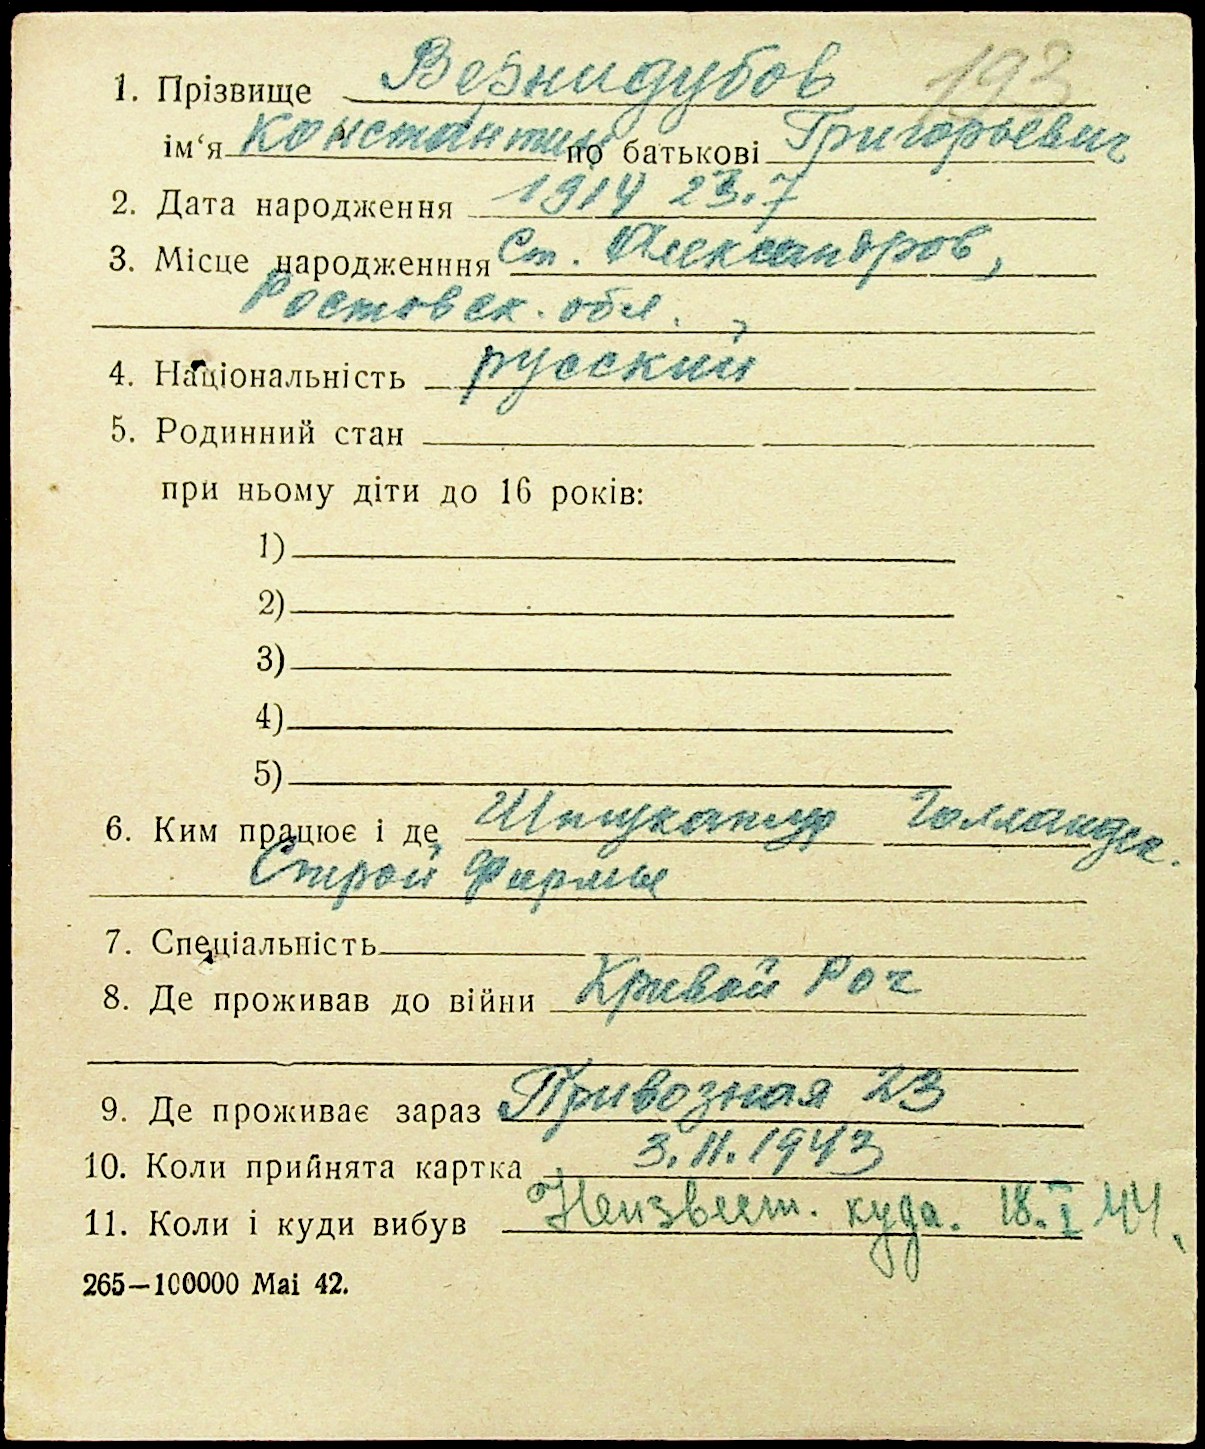 193
1. Прізвище Вернидубов
ім‘я Константин по батькові Григорьевич
2. Дата народження 1914 23.7
3. Місце народженння Ст. Александров,
Ростовск. обл.
4. Національність русский
5. Родинний стан
при ньому діти до 16 років:
1)
2)
3)
4)
5)
6. Ким працює і де Штукатур Голландск.
Строй Фирмы
7. Спеціальність
8. Де проживав до війни Кривой Рог
9. Де проживає зараз Привозная 23
10. Коли прийнята картка 3.II.1943
11. Коли і куди вибув Неизвест. куда. 18.I 44.
265—100000 Mai 42.